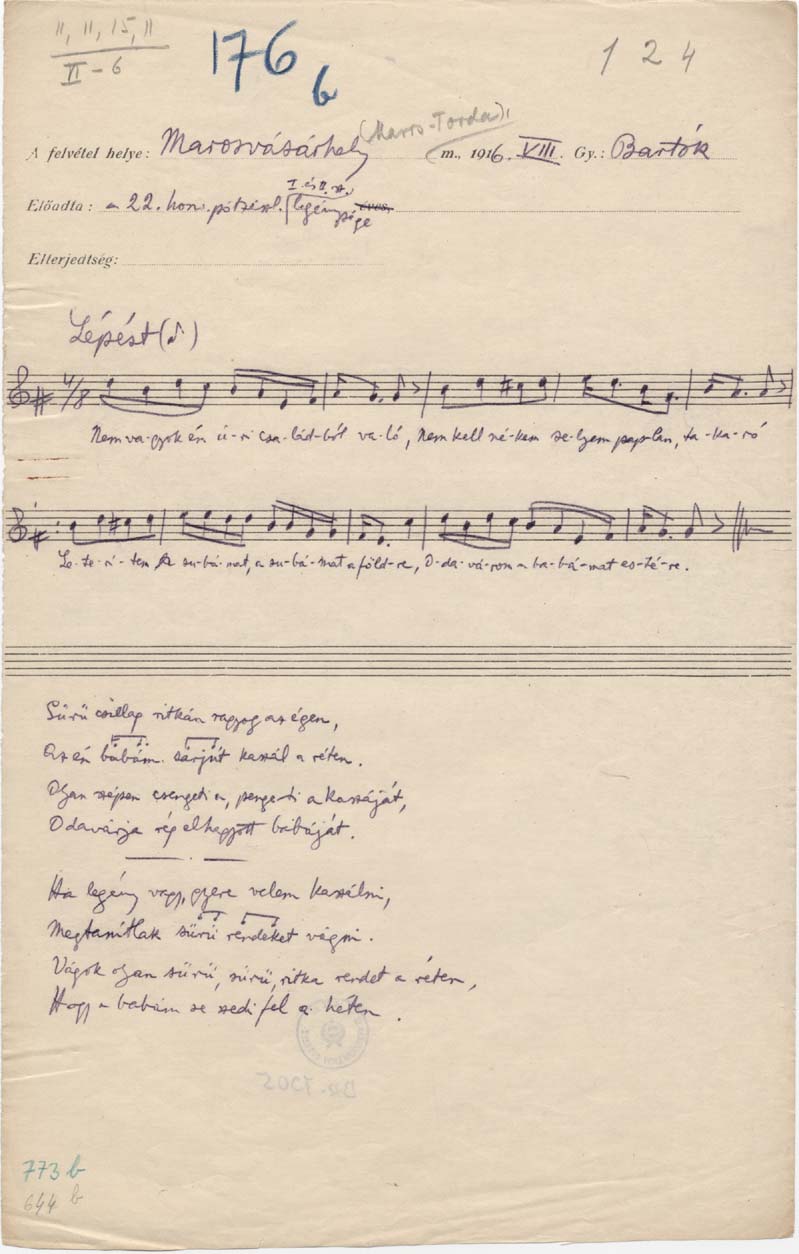 11, 11, 15, 11
II – 6
176
b
1 2 4
(Maros-Torda)
A felvétel helye: Marosvásárhely m., 1916. VIII. Gy.: Bartók
I. és II. sz.
Előadta: a 22. honv. pótzászl. legénysége éves.
Elterjedtség:
Lépést (♪)
4/8
Nem va-gyok én ú-ri csa-lád-ból va-ló, Nem kell né-kem se-lyem pap-lan, ta-ka-ró
Le-te-rí-tem a su-bá-mat, a su-bá-mat a föld-re, O-da-vá-rom a ba-bá-mat es-té-re.
Sűrű csillag ritkán ragyog az égen,
Az én babám sarjút kaszál a réten.
Olyan szépen csengeti a, penge-ti a kaszáját,
Odavárja rég elhagyott babáját.
Ha legény vagy, gyere velem kaszálni,
Megtanítlak sűrű rendeket vágni.
Vágok olyan sűrű, sűrű, ritka rendet a réten,
Hogy a babám se szedi fel a héten.
773 b
644 b